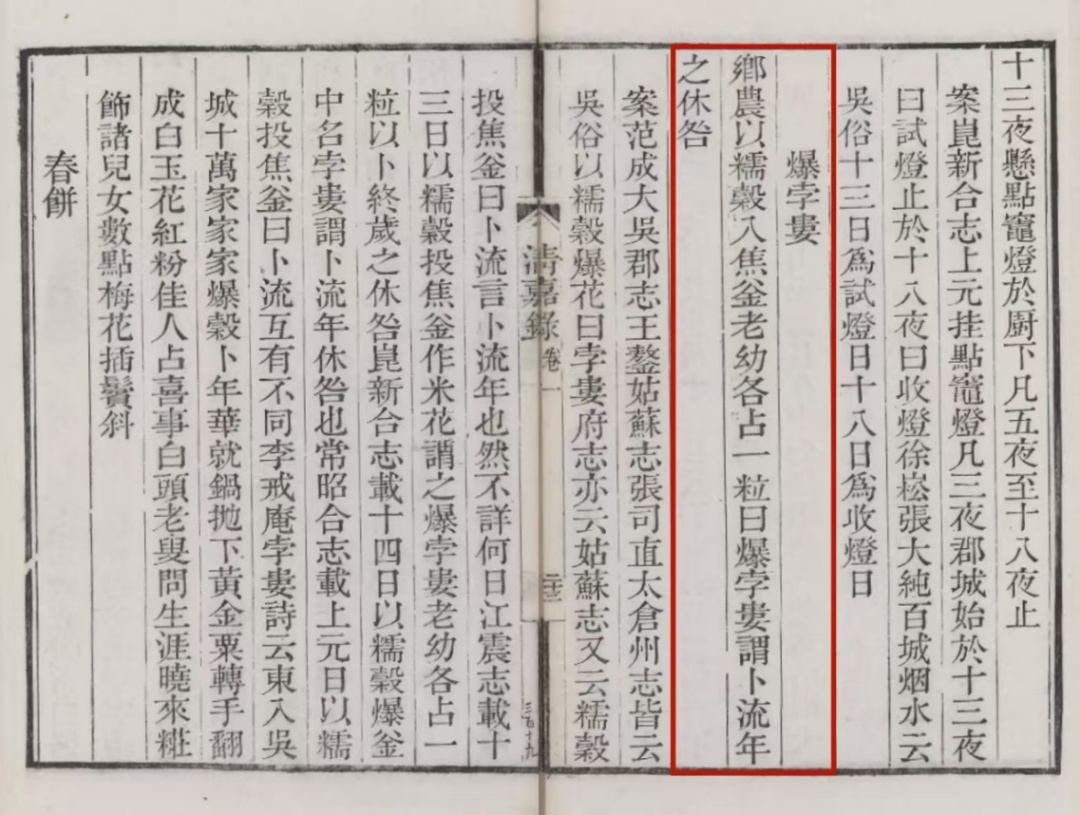 十三夜懸點竈燈於厨下凡五夜至十八夜止
案崑新合志上元挂點竈燈凡三夜郡城始於十三夜
曰試燈止於十八夜曰收燈徐崧張大純百城烟水云
吳俗十三日為試燈日十八日為收燈日
爆孛婁
鄉農以糯穀入焦釜老幼各占一粒曰爆孛婁謂卜流年
之休咎
案范成大吳郡志王鏊姑蘇志張司直太倉州志皆云
吳俗以糯穀爆花曰孛婁府志亦云姑蘇志又云糯穀
清嘉錄
卷一
二十三
投焦釜曰卜流言卜流年也然不詳何日江震志載十
三日以糯穀投焦釜作米花謂之爆孛婁老幼各占一
粒以卜終歲之休咎崑新合志載十四日以糯穀爆釜
中名孛婁謂卜流年休咎也常昭合志載上元日以糯
穀投焦釜曰卜流互有不同李戒庵孛婁詩云東入吳
城十萬家家家爆穀卜年華就鍋拋下黃金粟轉手翻
成白玉花紅粉佳人占喜事白頭老叟問生涯曉來糚
飾諸兒女數點梅花插鬢斜
春餅